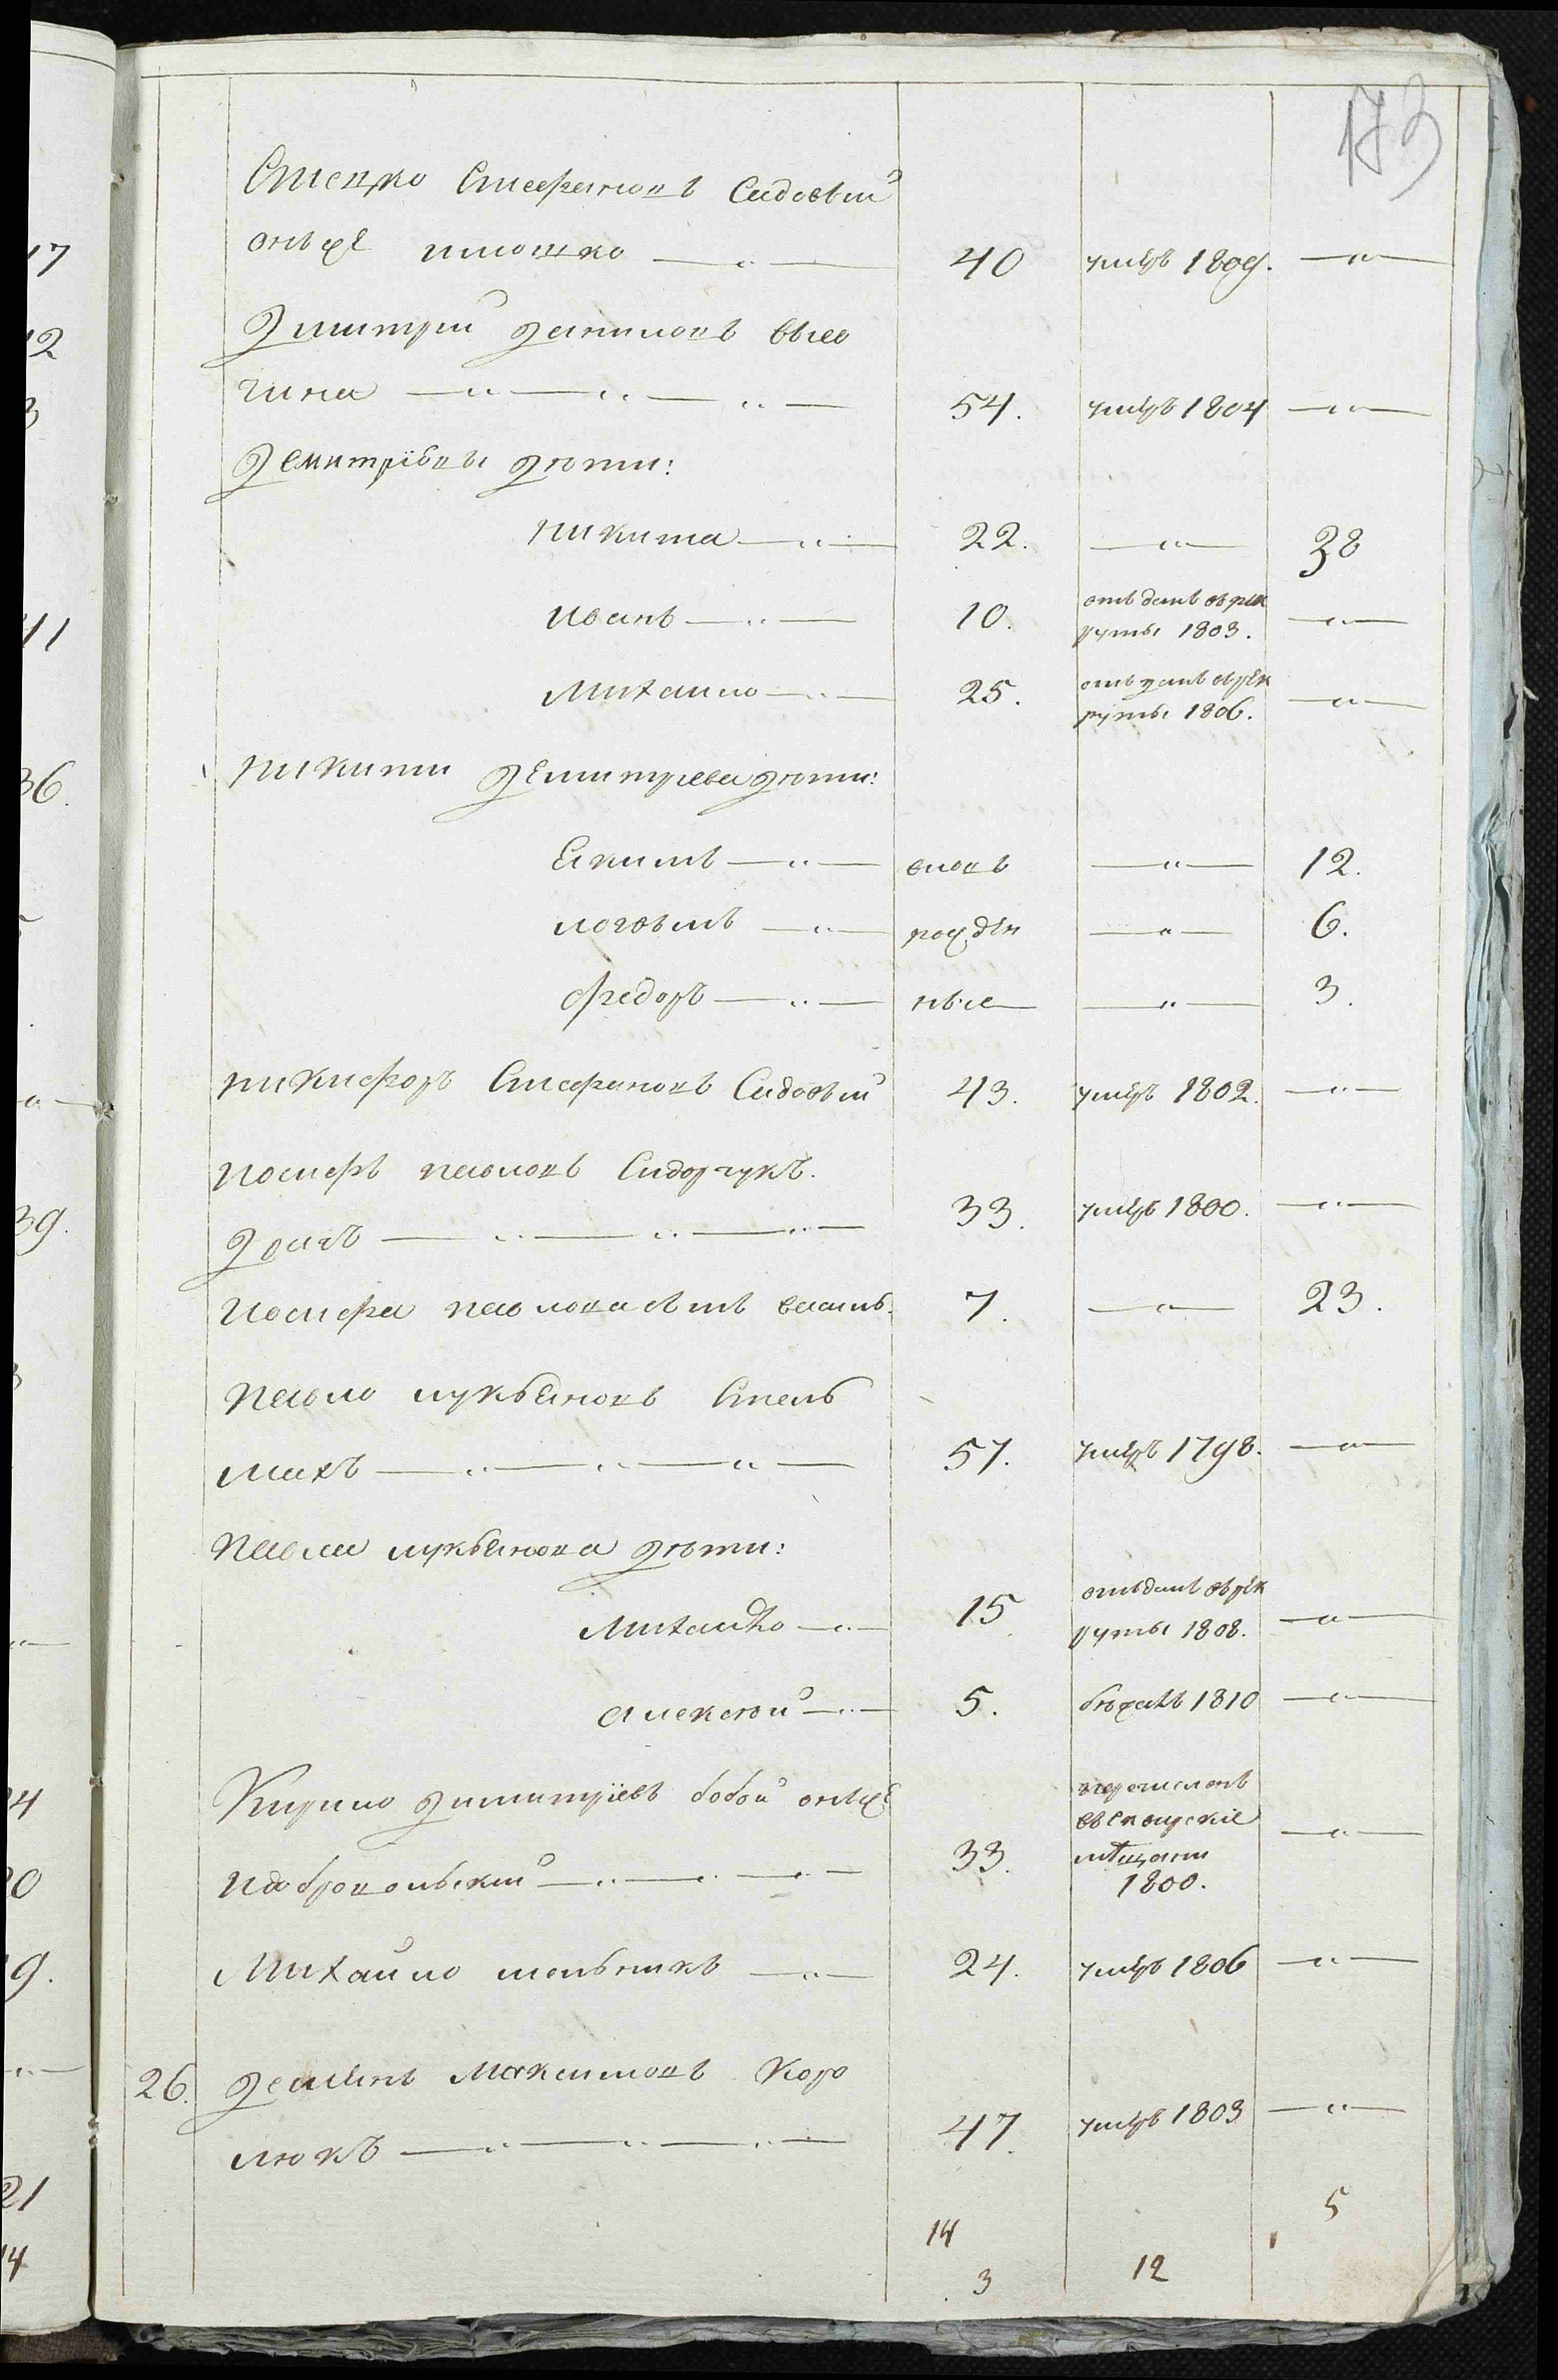 173
Стецко Стефановъ Садовый
онъже илюшко — „ — 40 умеръ 1809. — „ —
Димитрий Даниловъ высо
чина — „ — „ — „ — 54. умеръ 1804 — „ —
Демитрiевы дѣти:
никита — „ — 22. — „ — 38
иванъ — „ — 10. отъданъ въ рек
руты 1803. — „ —
Михаило — „ — 25. отъданъ въ рек
руты 1806. — „ —
никиты Демитриева дѣти:
Екимъ — „ — вновь — „ — 12.
логвымъ — „ — рожден — „ — 6.
федоръ — „ — ные — „ — 3.
никифоръ Стефановъ Садовый 43. умеръ 1802. — „ —
иосифъ павловъ Сидорчукъ.
— „ — „ — „ — 33. умеръ 1800. — „ —
иосифа павлова сынъ 7. — „ — 23.
павло лукьяновъ Стель
махъ — „ — „ — „ — 57. умеръ 1798. — „ —
павла лукьянова дѣти:
Михайло — „ — 15 отъданъ въ рек
руты 1808. — „ —
алексѣй — „ — 5. бѣжалъ 1810 — „ —
Кирило Димитрiевъ бобой онъже
идобровольский — „ — „ — 33. перечисленъ
мѣщани
1800. — „ —
Михайло мельникъ — „ — 24. умеръ 1806 — „ —
26. Демянъ Максимовъ Коро
люкъ — „ — „ — „ — 47. умеръ 1803 — „ —
14
3 12 5
17
12
3
41
36.
39.
24
20
19.
21
14